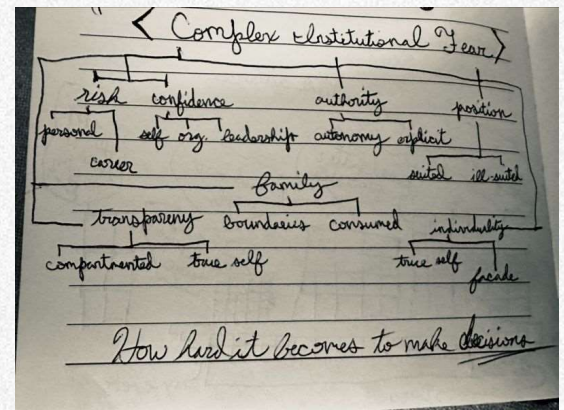 < Complex Institutional Fear >
risk confidence authority position
personal self org. leadership autonomy explicit
career suited ill-suited
family
transpareny boundaries consumed individulty
compartmented true self true self
facade
How hard it becomes to make decisions